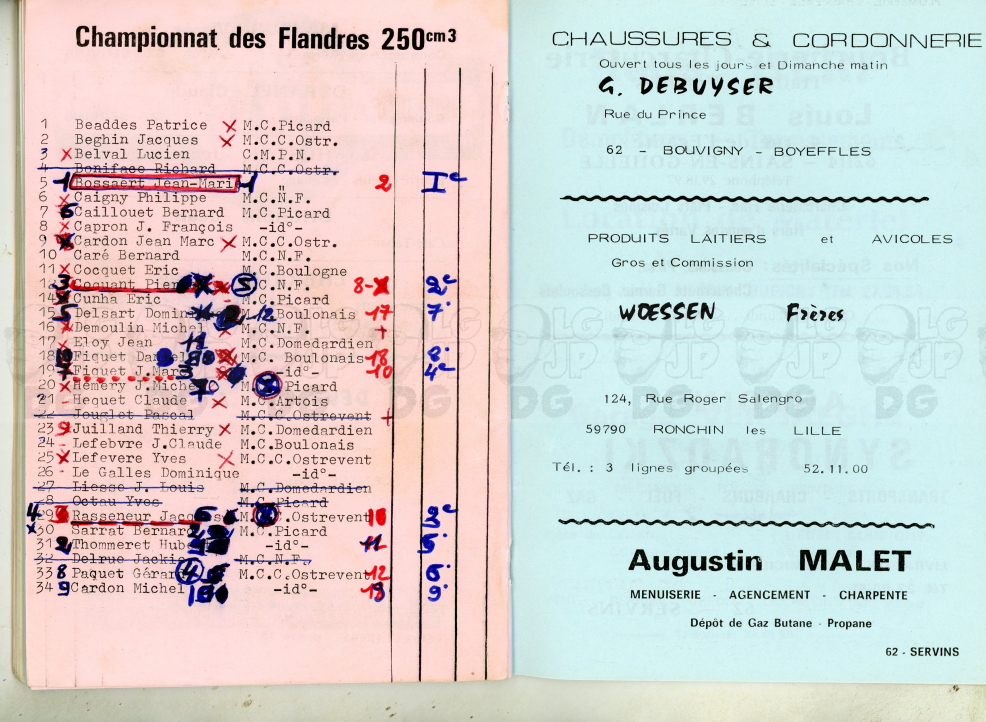 Championnat des Flandres 250cm3
1 Beaddes Patrice X M.C.Picard
2 Beghin Jacques X M.C.C.Ostr.
3 X Belval Lucien C.M.P.N.
4 Boniface Richard M.C.C.Ostr.
5 1 Bossaert Jean-Mari 1 " 2 Ie
6 X Caigny Philippe M.C.N.F.
7 6 Caillouet Bernard M.C.Picard
8 X Capron J. François -id°-
9 X Cardon Jean Marc X M.C.C.Ostr.
10 Caré Bernard M.C.N.F.
11 X Cocquet Eric M.C.Boulogne
3 Coquant Pier 5 C.N.F. 8- 2e
14 Cunha Eric M.C.Picard
15 5 Delsart Domini 12 Boulonais 17 7
16 X Demoulin Michel M.C.N.F. +
17 X Eloy Jean 11 M.C.Domedardien
18 Fiquet Da M.C. Boulonais 18 8
19 Fiquet J.Marc -id°- 10 4e
20 X Hemery J.Michel Picard
21 - Hequet Claude X M.C.Artois
22 Jouglet Pascal M.C.C.Ostrevent +
23 9 Juilland Thierry X M.C.Domedardien
24 - Lefebvre J.Claude M.C.Boulonais
25 X Lefevere Yves X M.C.C.Ostrevent
26 - Le Galles Dominique -id°-
27 Liesse J. Louis M.C.Domedardien
28 Octau Yves M.C.Picard
4 29 Rasseneur Jacques .Ostrevent 3e
X 30 Sarrat Bernar M.C.Picard
31 2 Thommeret Hube -id°- 11
32 Delrue Jackie M.C.N.F.
33 8 Paquet Gérar 4 M.C.C.Ostrevent 12 6
34 9 Cardon Michel -id°- 9
CHAUSSURES & CORDONNERIE
Ouvert tous les jours et Dimanche matin
G. DEBUYSER
Rue du Prince
62 - BOUVIGNY - BOYEFFLES
PRODUITS LAITIERS et AVICOLES
Gros et Commission
WOESSEN Frères
124, Rue Roger Salengro
59790 RONCHIN les LILLE
Tél. : 3 lignes groupées 52.11.00
Augustin MALET
MENUISERIE - AGENCEMENT - CHARPENTE
Dépôt de Gaz Butane - Propane
62 - SERVINS